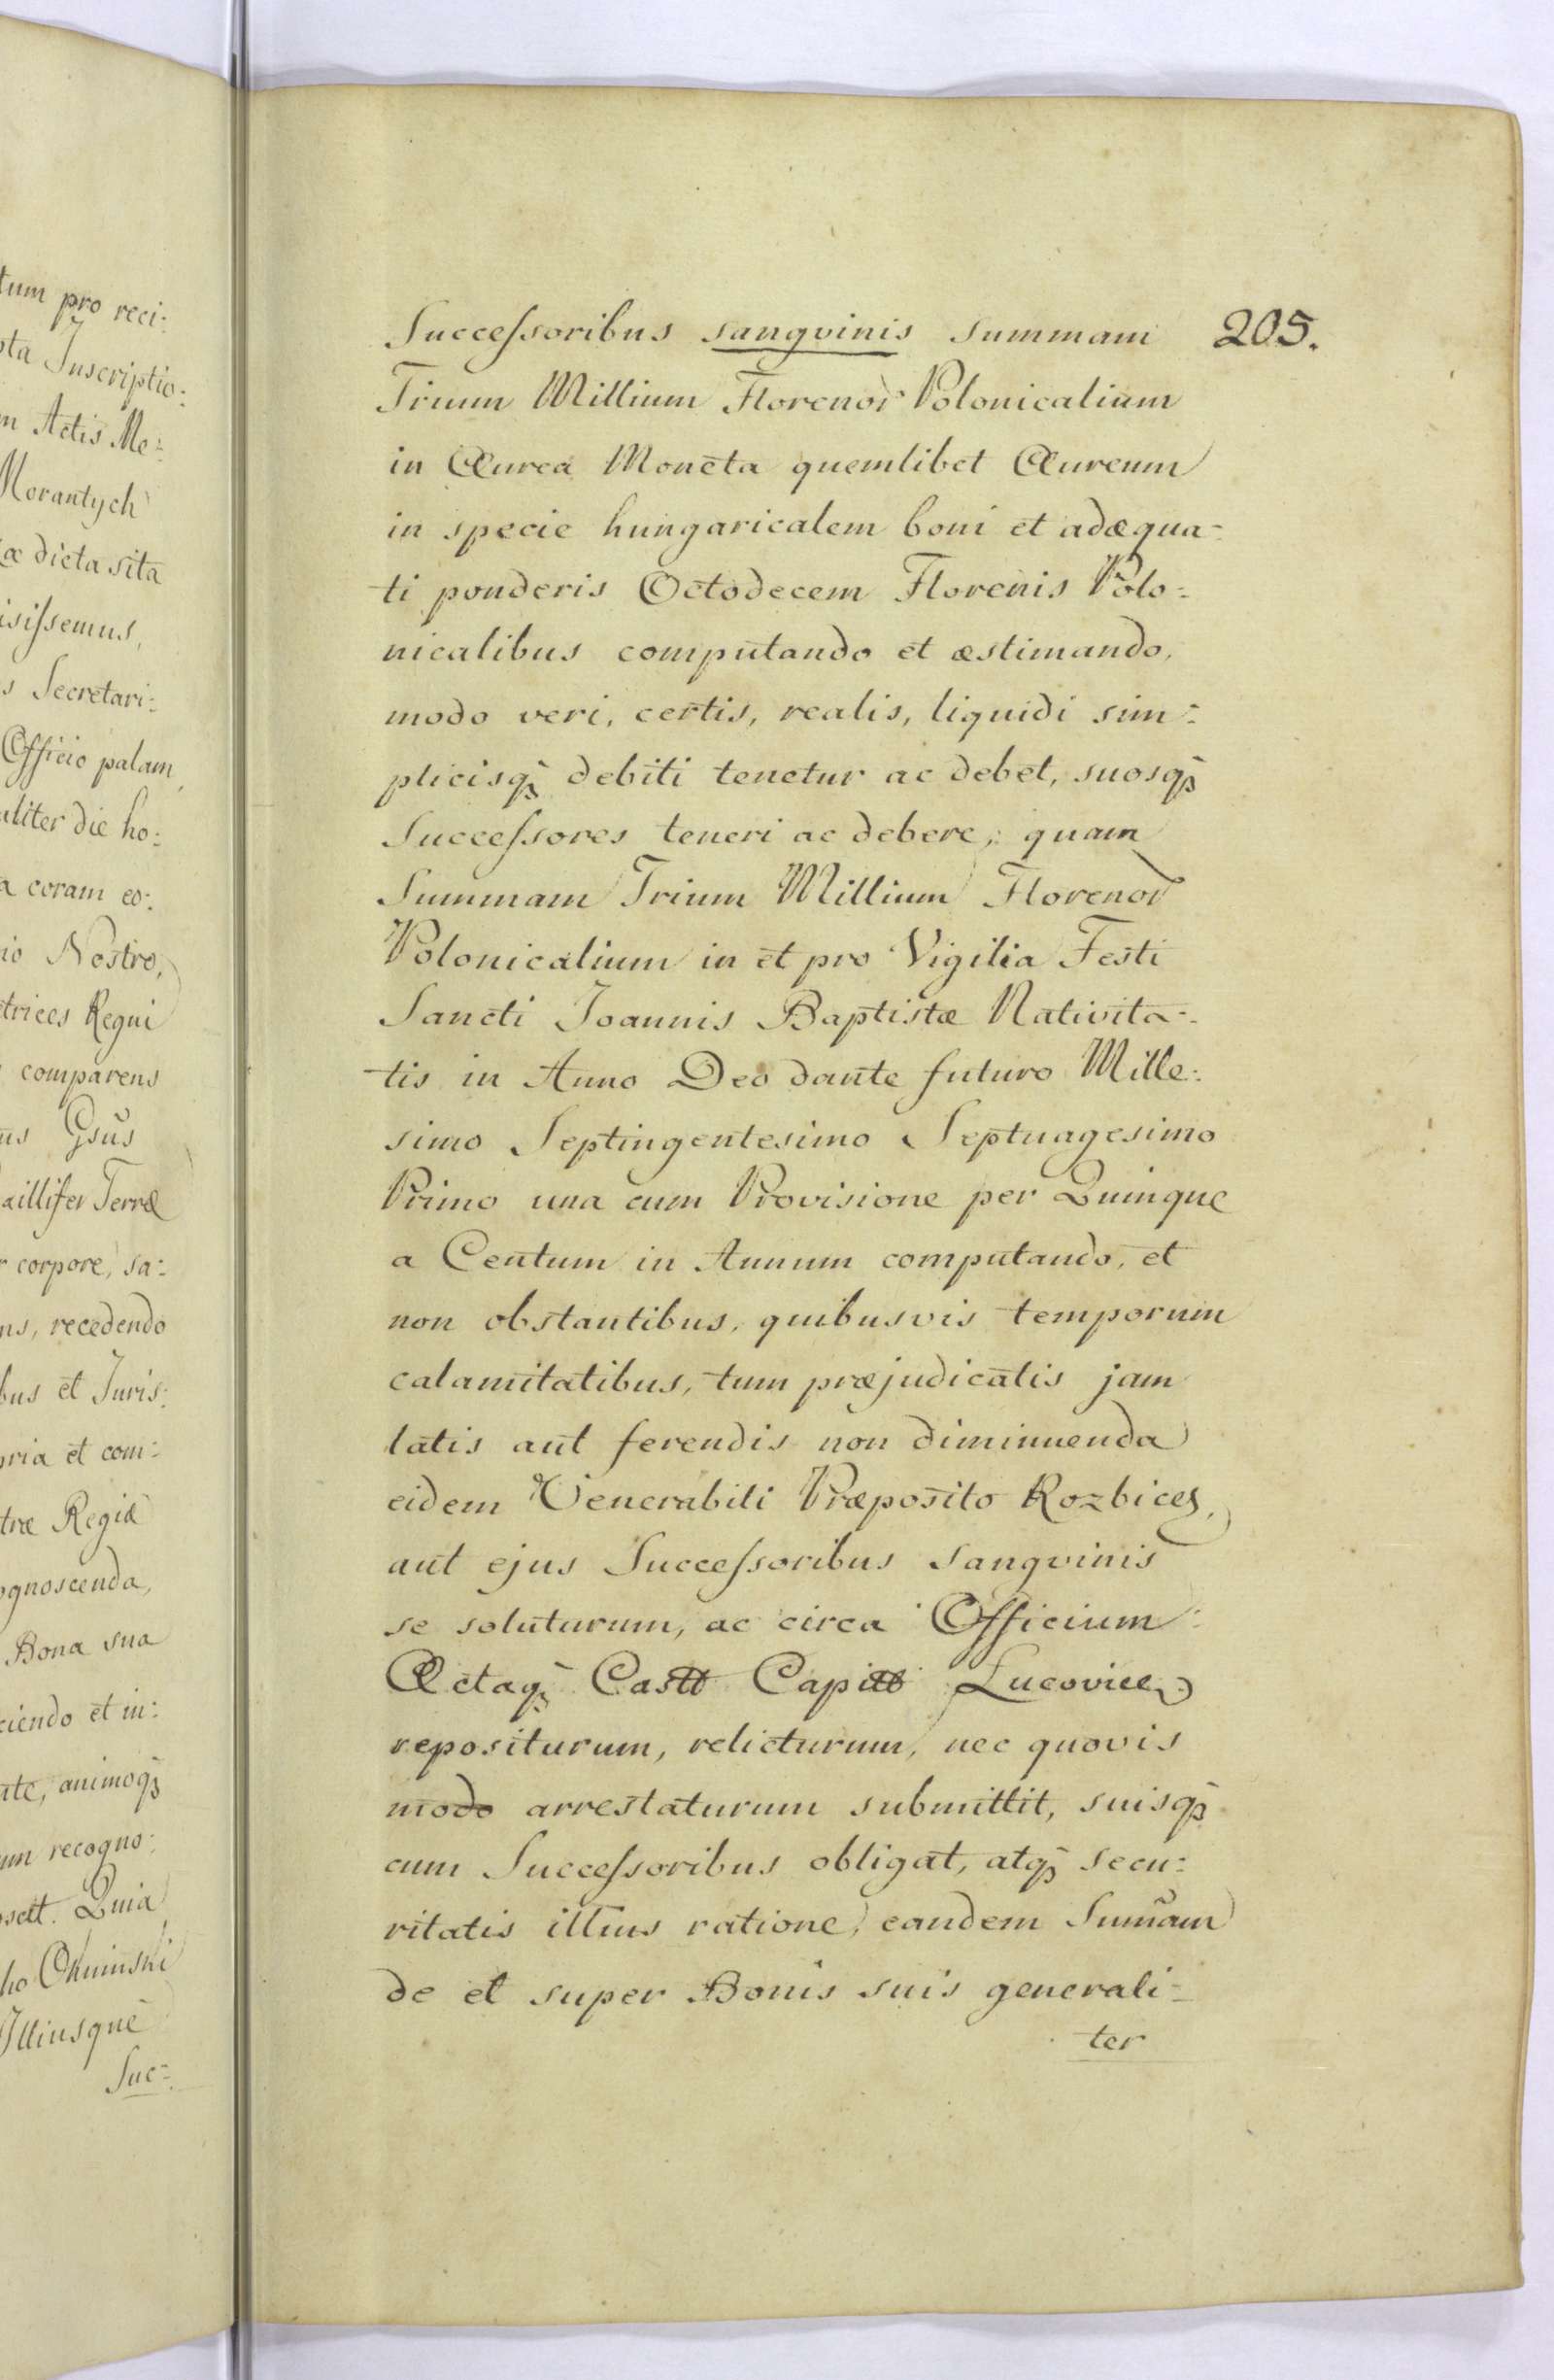 tum pro reci:
ota Inscriptio:
m Actis Me:
Morantych
æ dicta sita
isiſsemus,
s Secretari:
Officio palam,
aliter die ho:
a coram eo:
io Nostro,
trices Regni
comparens
us Gsus
aillifer Terræ
r corpore, sa:
ns, recedendo
bus et Juris:
pria et com:
træ Regiæ
ognoscenda,
Bona sua
ciendo et in:
ate, animoqꝫ
um recogno:
osctt. Quia
ho Okuinski
Illiusque
Suc:
Succeſsoribus sangvinis summam 205.
Trium Millium Florenor Polonicalium
in Aurea Moneta quemlibet Aureum
in specie hungaricalem boni et adæqua:
ti ponderis Octodecem Florenis Polo:
nicalibus computando et æstimando,
modo veri, certis, realis, liquidi sim:
plicisqꝫ debiti tenetur ac debet, suosqꝫ
Succeſsores teneri ac debere, quam
Summam Trium Millium Florenor
Polonicalium in et pro Vigilia Festi
Sancti Joannis Baptistæ Nativita:
tis in Anno Deo dante futuro Mille:
simo Septingentesimo Septuagesimo
Primo una cum Provisione per Quinque
a Centum in Annum computando, et
non obstantibus, quibusvis temporum
calamitatibus, tum præjudicatis jam
latis aut ferendis non diminuenda
eidem Venerabili Præposito Rozbices,
aut ejus Succeſsoribus Sangvinis
se soluturum, ac circa Officium
Actaqꝫ Castt Capitt Lucovicen
repositurum, relicturum, nec quovis
modo arrestaturum submittit, suisqꝫ
cum Succeſsoribus obligat, atqꝫ secu:
ritatis illius ratione, eandem Sumam
de et super Bonis suis generali:
ter